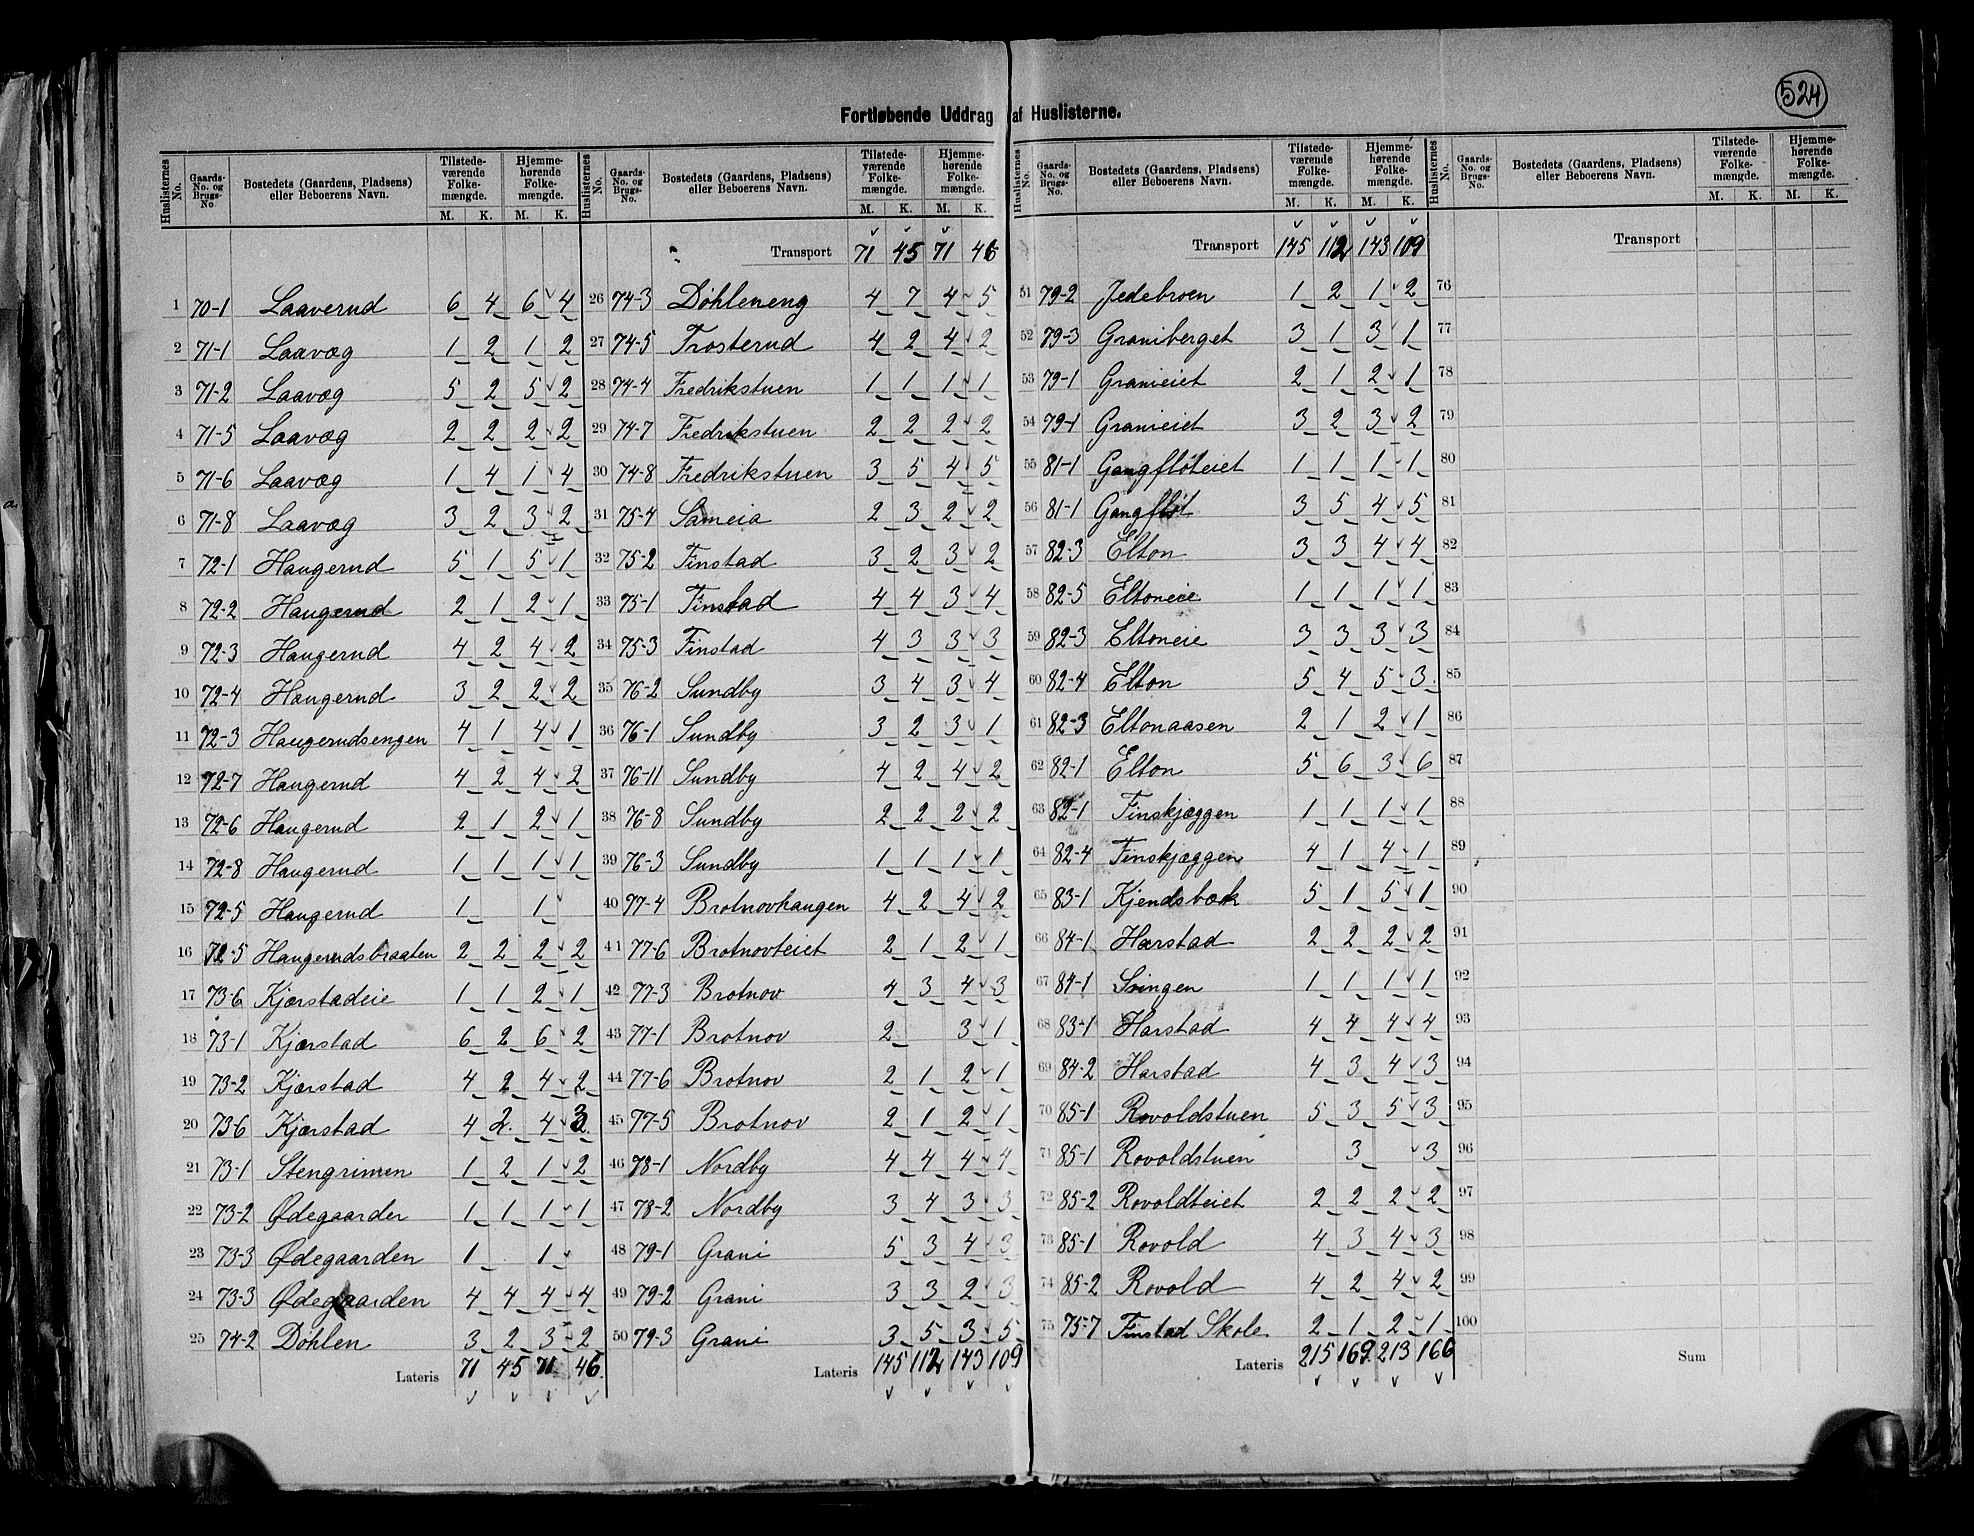 524
Fortløbende Uddrag af Huslisterne.
Huslisternes No. Gaards-No. og Brugs-No. Bostedets (Gaardens, Pladsens) eller Beboerens Navn. Tilstede-værende Folke-mængde. M. K. Hjemme-hørende Folke-mængde. M. K.
1 70-1 Laaverud 6 4 6 4
2 71-1 Laavæg 1 2 1 2
3 71-2 Laavæg 5 2 5 2
4 71-5 Laavæg 2 2 2 2
5 71-6 Laavæg 1 4 1 4
6 71-8 Laavæg 3 2 3 2
7 72-1 Haugerud 5 1 5 1
8 72-2 Haugerud 2 1 2 1
9 72-3 Haugerud 4 2 4 2
10 72-4 Haugerud 3 2 2 2
11 72-3 Haugerudsengen 4 1 4 1
12 72-7 Haugerud 4 2 4 2
13 72-6 Haugerud 2 1 2 1
14 72-8 Haugerud 1 1 1 1
15 72-5 Haugerud 1 1
16 72-5 Haugerudsbraaten 2 2 2 2
17 73-6 Kjærstadeie 1 1 2 1
18 73-1 Kjærstad 6 2 6 2
19 73-2 Kjærstad 4 2 4 2
20 73-6 Kjærstad 4 2 4 3
21 73-1 Stengrimen 1 2 1 2
22 73-2 Ødegaarden 1 1 1 1
23 73-3 Ødegaarden 1 1
24 73-3 Ødegaarden 4 4 4 4
25 74-2 Döhlen 3 2 3 2
Lateris 71 45 71 46
Huslisternes No. Gaards-No. og Brugs-No. Bostedets (Gaardens, Pladsens) eller Beboerens Navn. Tilstede-værende Folke-mængde. M. K. Hjemme-hørende Folke-mængde. M. K.
Transport 71 45 71 46
26 74-3 Döhleneng 4 7 4 5
27 74-5 Trosterud 4 2 4 2
28 74-4 Fredrikstuen 1 1 1 1
29 74-7 Fredrikstuen 2 2 2 2
30 74-8 Fredrikstuen 3 5 4 5
31 75-4 Sameia 2 3 2 2
32 75-2 Finstad 3 2 3 2
33 75-1 Finstad 4 4 3 4
34 75-3 Finstad 4 3 3 3
35 76-2 Sundby 3 4 3 4
36 76-1 Sundby 3 2 3 1
37 76-11 Sundby 4 2 4 2
38 76-8 Sundby 2 2 2 2
39 76-3 Sundby 1 1 1 1
40 77-4 Brotnovhaugen 4 2 4 2
41 77-6 Brotnovteiet 2 1 2 1
42 77-3 Brotnov 4 3 4 3
43 77-1 Brotnov 2 3 1
44 77-6 Brotnov 2 1 2 1
45 77-5 Brotnov 2 1 2 1
46 78-1 Nordby 4 4 4 4
47 78-2 Nordby 3 4 3 3
48 79-1 Grani 5 3 4 3
49 79-2 Grani 3 3 2 3
50 79-3 Grani 3 5 3 5
Lateris 145 112 143 109
Huslisternes No. Gaards-No. og Brugs-No. Bostedets (Gaardens, Pladsens) eller Beboerens Navn. Tilstede-værende Folke-mængde. M. K. Hjemme-hørende Folke-mængde. M. K.
Transport 145 112 143 109
51 79-2 Jedebroen 1 2 1 2
52 79-3 Graniberget 3 1 3 1
53 79-1 Granieiet 2 1 2 1
54 79-1 Granieiet 3 2 3 2
55 81-1 Gangflöteiet 1 1 1 1
56 81-1 Gangflöt 3 5 4 5
57 82-3 Elton 3 3 4 4
58 82-5 Eltoneie 1 1 1 1
59 82-3 Eltoneie 3 3 3 3
60 82-4 Elton 5 4 5 3
61 82-3 Eltonaasen 2 1 2 1
62 82-1 Elton 5 6 3 6
63 82-1 Finskjæggen 1 1 1 1
64 82-4 Finskjæggen 4 1 4 1
65 83-1 Kjendsbæk 5 1 5 1
66 84-1 Harstad 2 2 2 2
67 84-1 Svingen 1 1 1 1
68 83-1 Harstad 4 4 4 4
69 84-2 Harstad 4 3 4 3
70 85-1 Rovoldstuen 5 3 5 3
71 85-1 Rovoldstuen 3 3
72 85-2 Rovoldteiet 2 2 2 2
73 85-1 Rovold 4 3 4 3
74 85-2 Rovold 4 2 4 2
75 75-7 Finstad Skole 2 1 2 1
Lateris 215 169 213 166
Huslisternes No. Gaards-No. og Brugs-No. Bostedets (Gaardens, Pladsens) eller Beboerens Navn. Tilstede-værende Folke-mængde. M. K. Hjemme-hørende Folke-mængde. M. K.
Transport
76
77
78
79
80
81
82
83
84
85
86
87
88
89
90
91
92
93
94
95
96
97
98
99
100
Sum